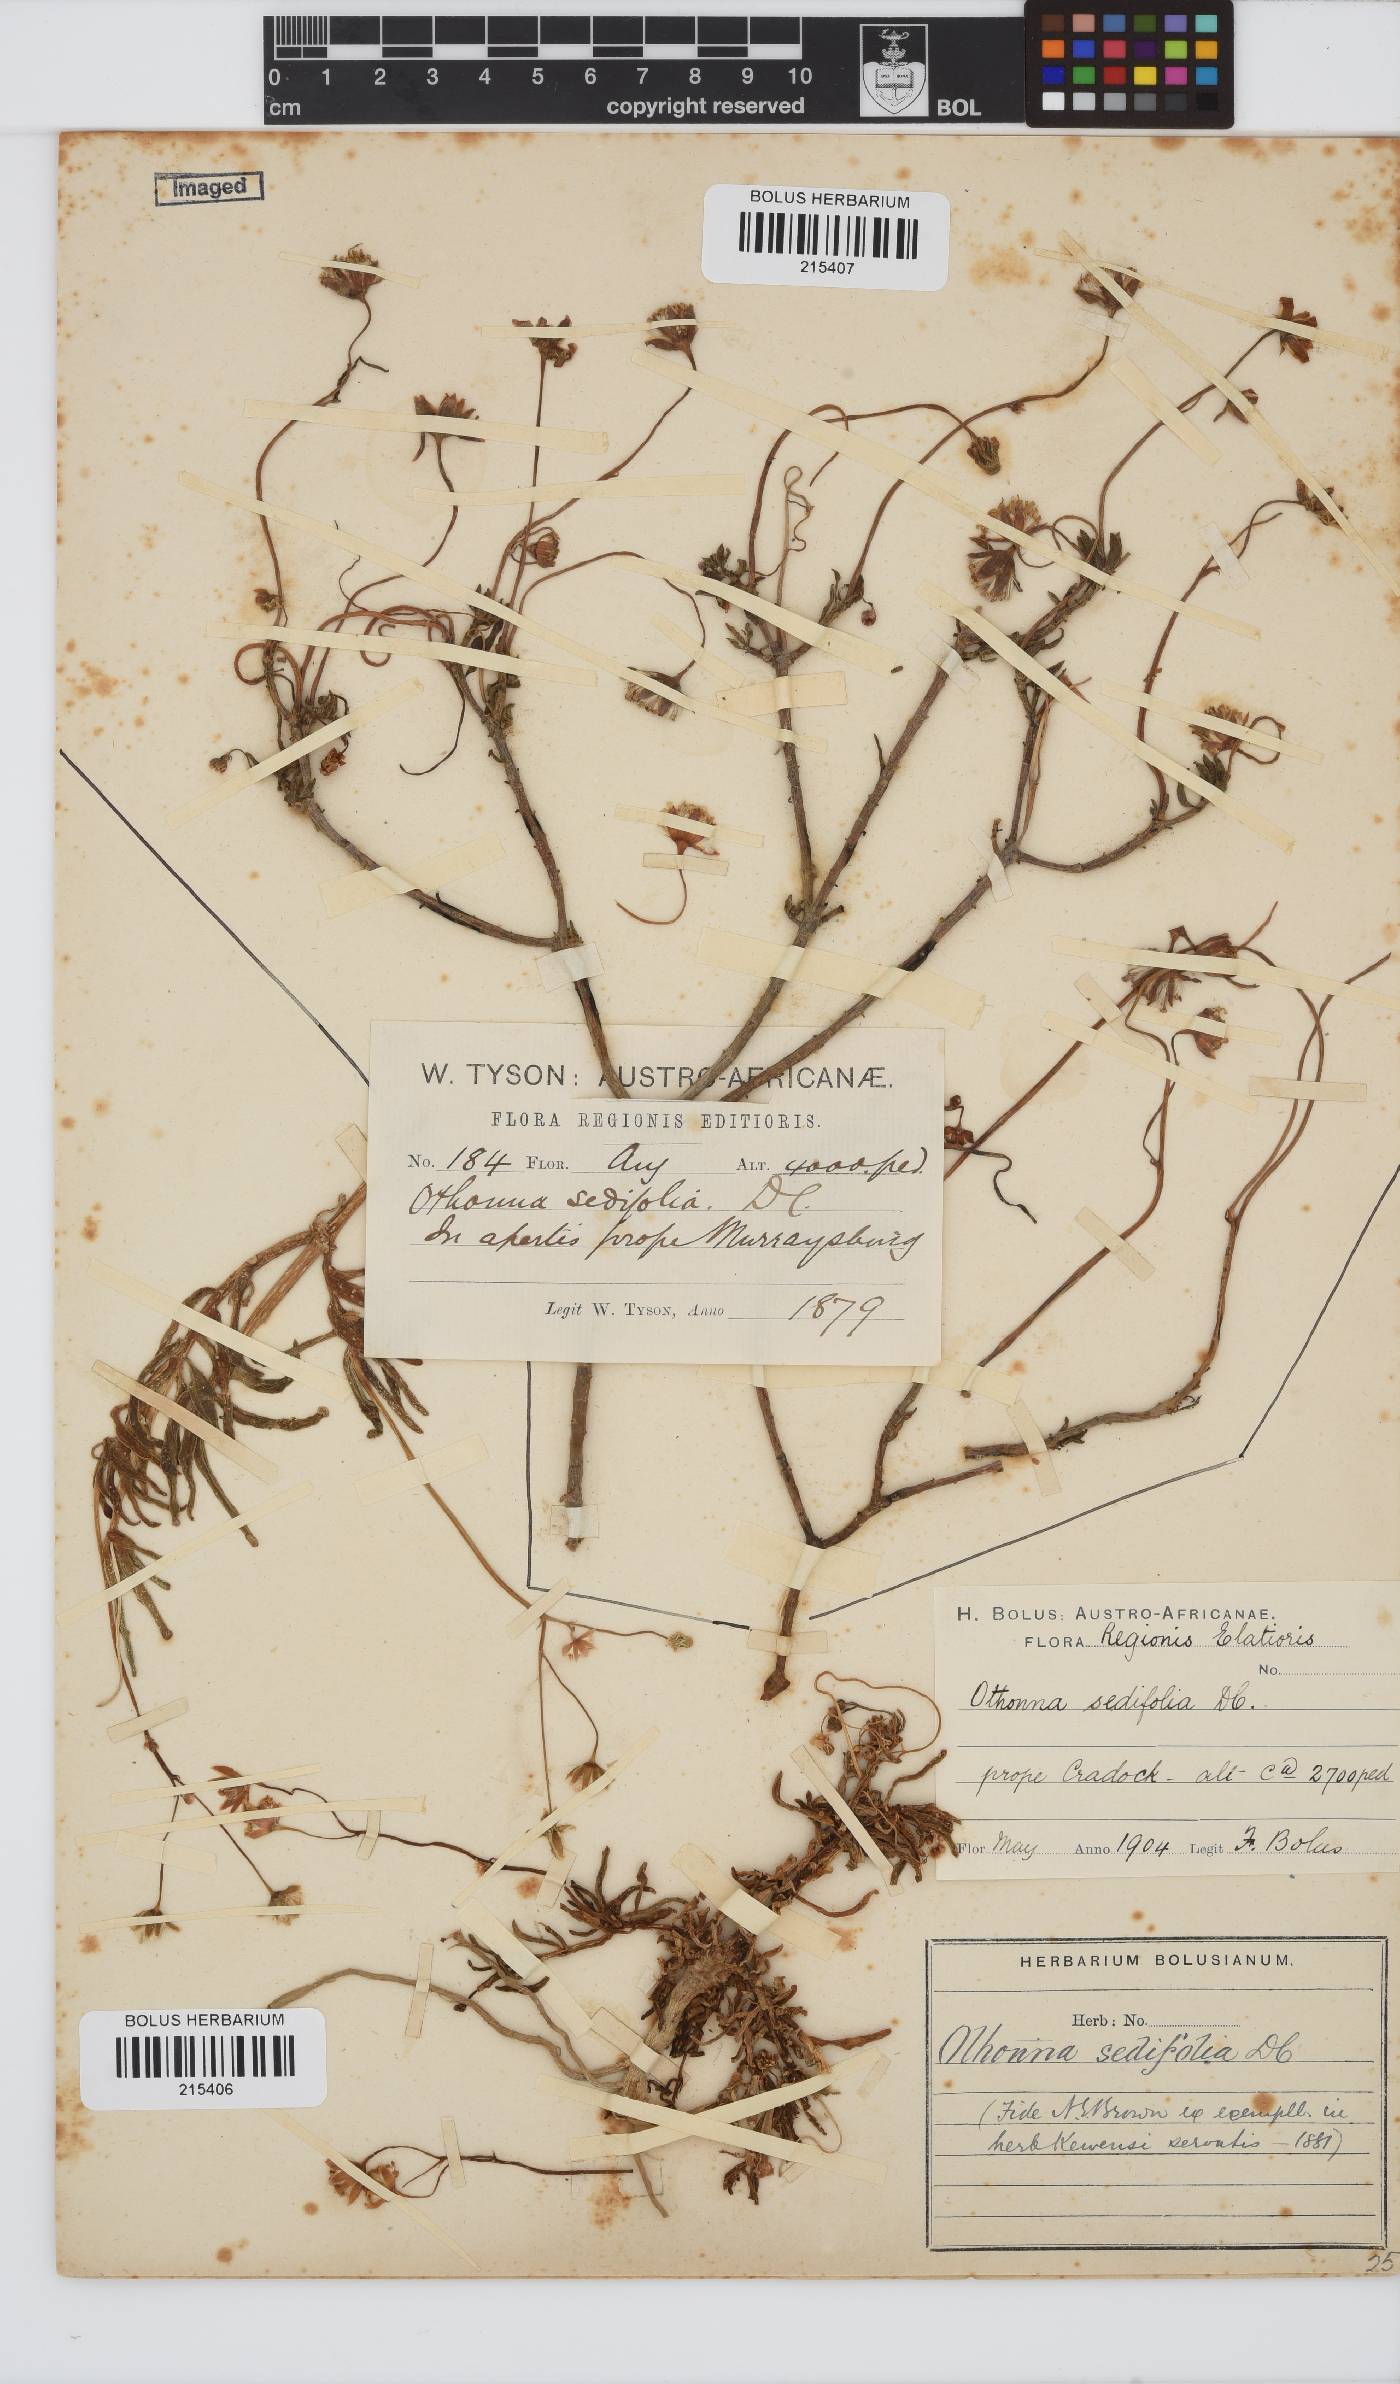 0 1 2 3 4 5 6 7 8 9 10
cm
copyright reserved
BOL
Imaged
BOLUS HERBARIUM
215407
W. TYSON: AUSTRO-AFRICANÆ.
FLORA REGIONIS EDITIORIS.
No. 184 FLOR. Aug ALT. 4000.ped.
Othonna sedifolia. DC.
In apertis prope Murraysburg
Legit W. TYSON, Anno 1879
H. BOLUS: AUSTRO-AFRICANAE.
FLORA Regionis Elatioris
No.
Othonna sedifolia DC.
prope Cradock - alt - ca 2700 ped
Flor May Anno 1904 Legit F. Bolus
HERBARIUM BOLUSIANUM.
Herb: No.
Othonna sedifolia DC
(Fide N.E.Brown ex exempll. in
herb Kewensi servatis - 1881)
BOLUS HERBARIUM
215406
25